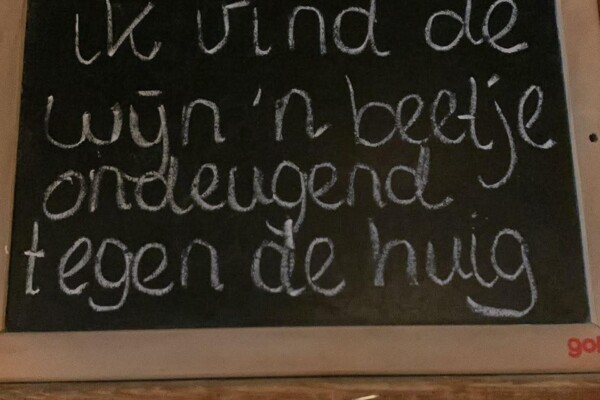 ik vind de
wijn 'n beetje
ondeugend
tegen de huig